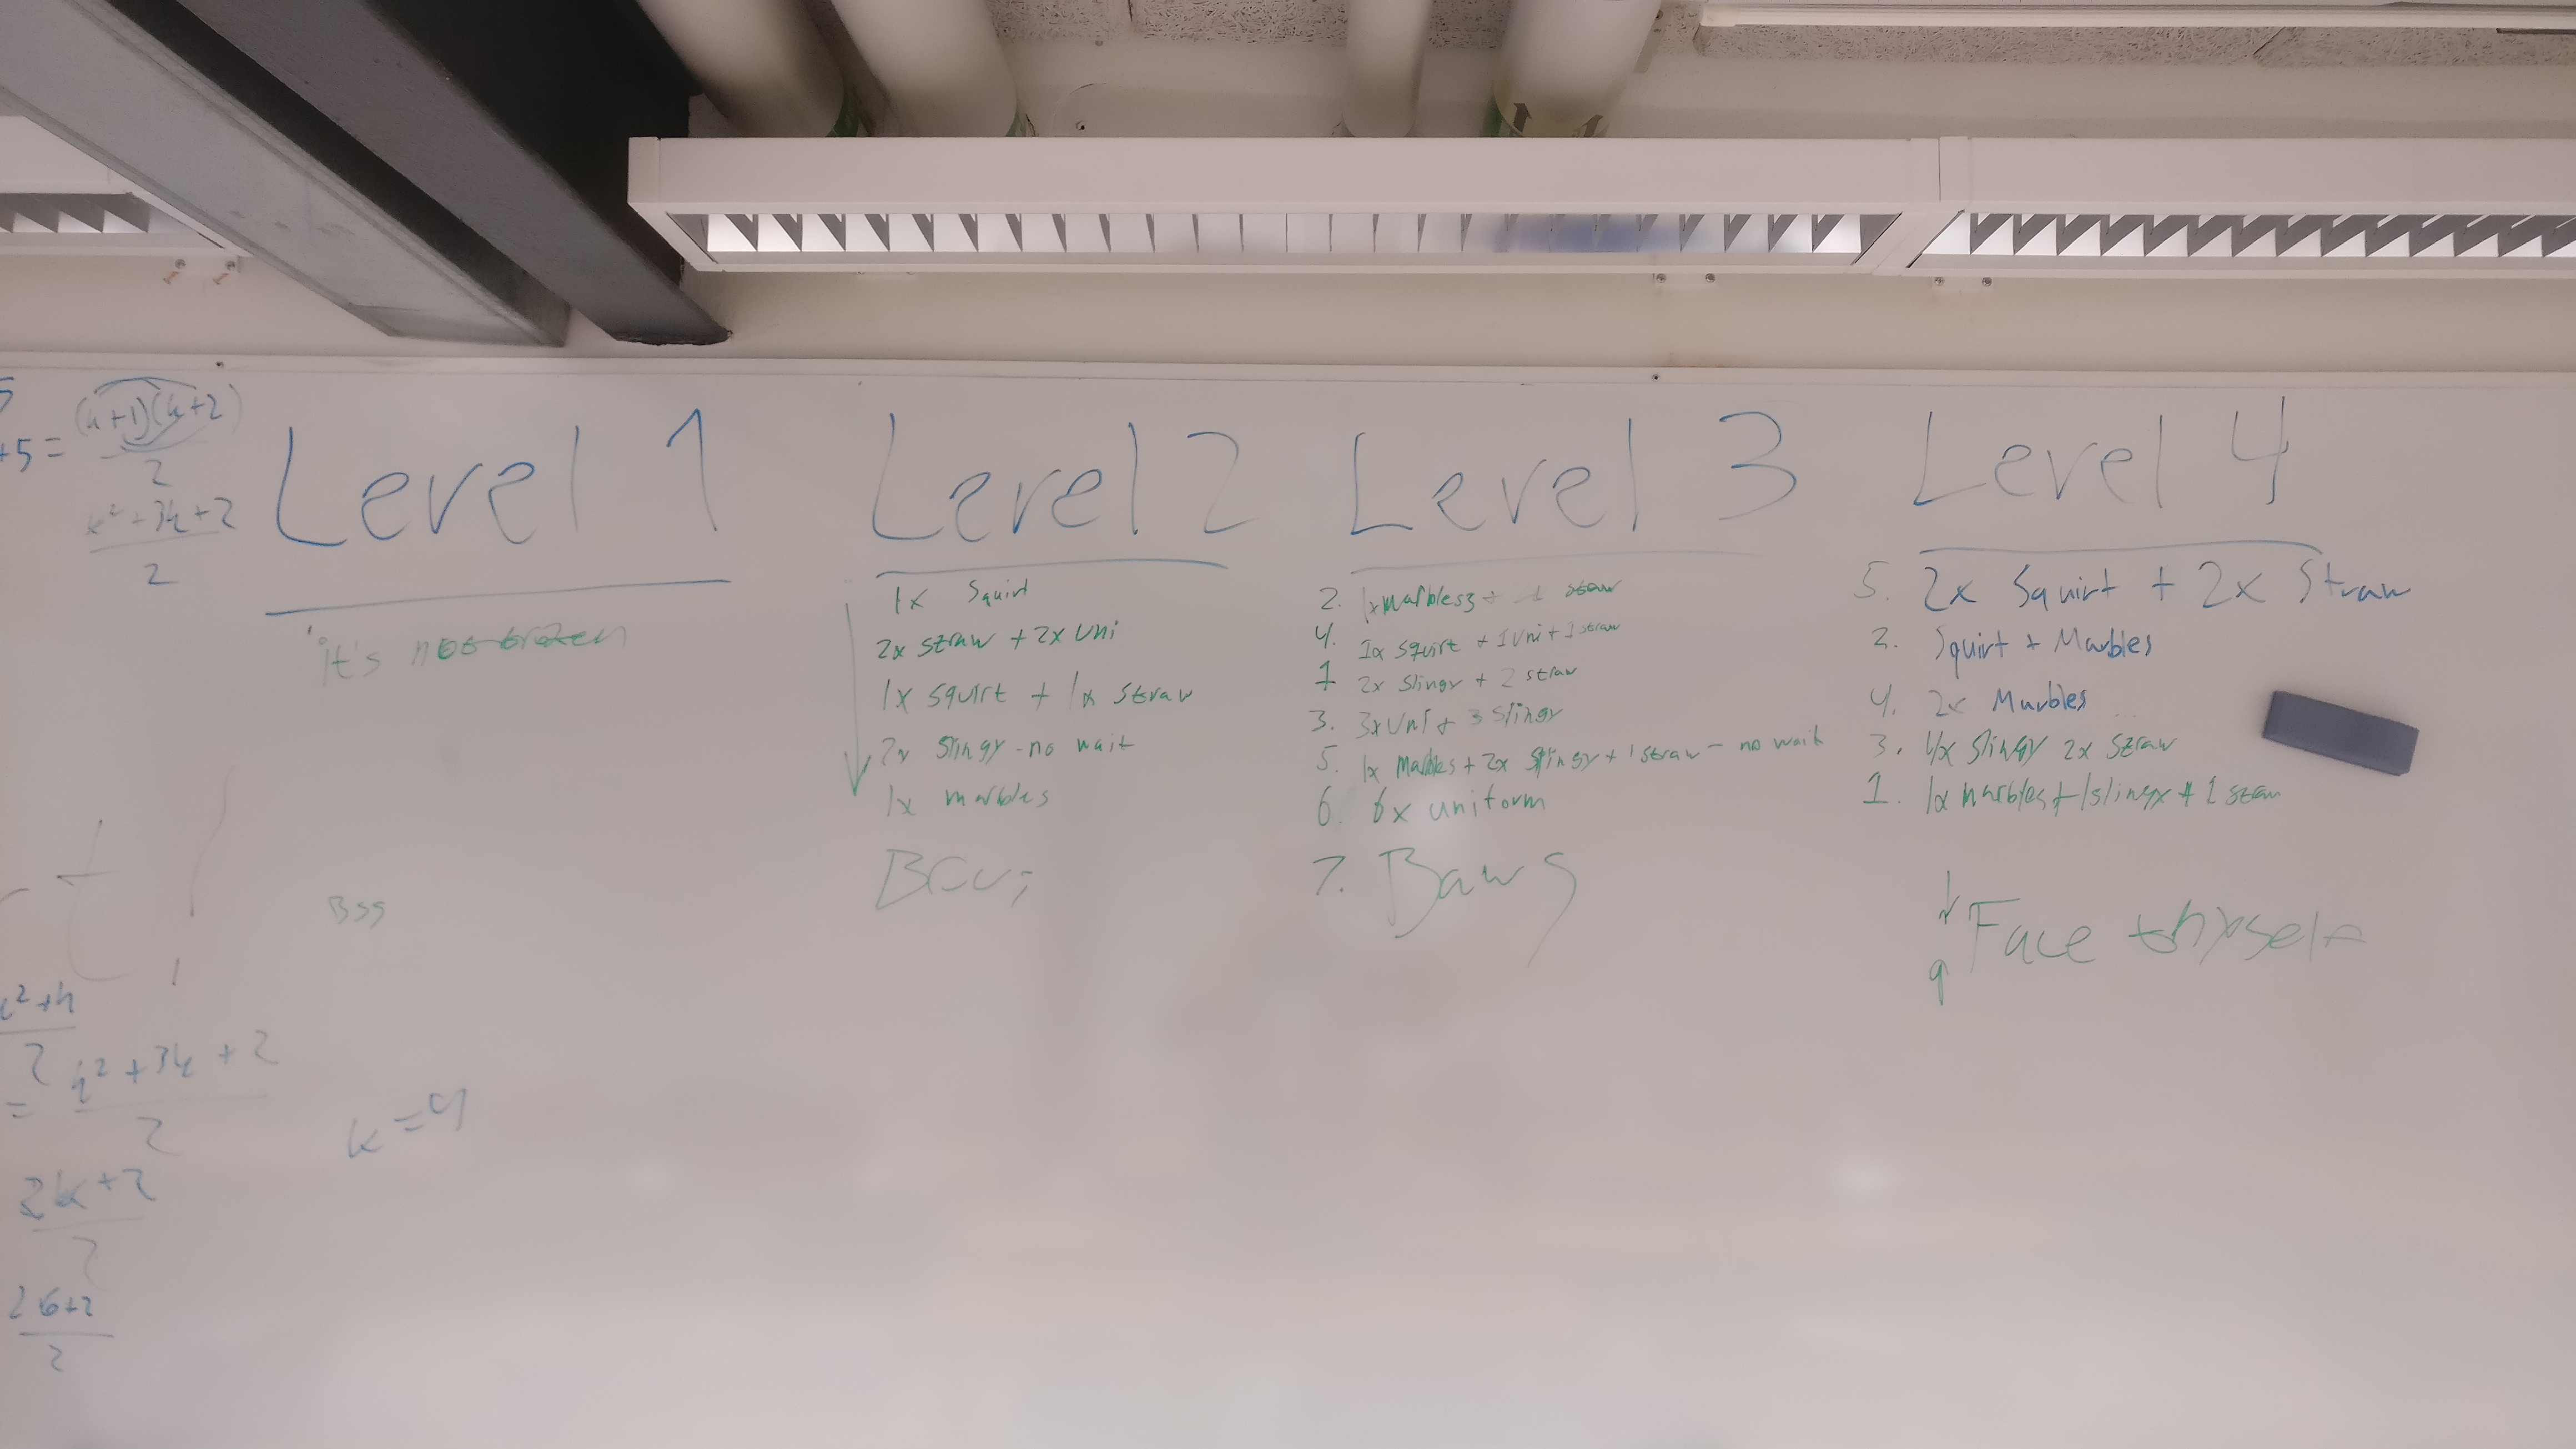 +5 = (k+1)(k+2)
2
k² + 3k + 2
2
Level 1
it's not broken
BSS
k² + k
2
= k² + 3k + 2
2
k = 4
2k + 2
2
2
Level 2
1x Squirt
2x straw + 2x Uni
1x squirt + 1x straw
2x Slingy - no wait
1x marbles
Level 3
2. 1x marbles + 1 straw
4. 1x squirt + 1 Uni + 1 straw
1 2x Slingy + 2 straw
3. 3x Uni + 3 Slingy
5. 1x Marbles + 2x Slingy + 1 straw - no wait
6. 6x uniform
7.
Level 4
5. 2x Squirt + 2x Straw
2. Squirt + Marbles
4. 2x Marbles
3. 4x Slingy 2x straw
1. 1x marbles + 1 slingy + 1 straw
Face thyself